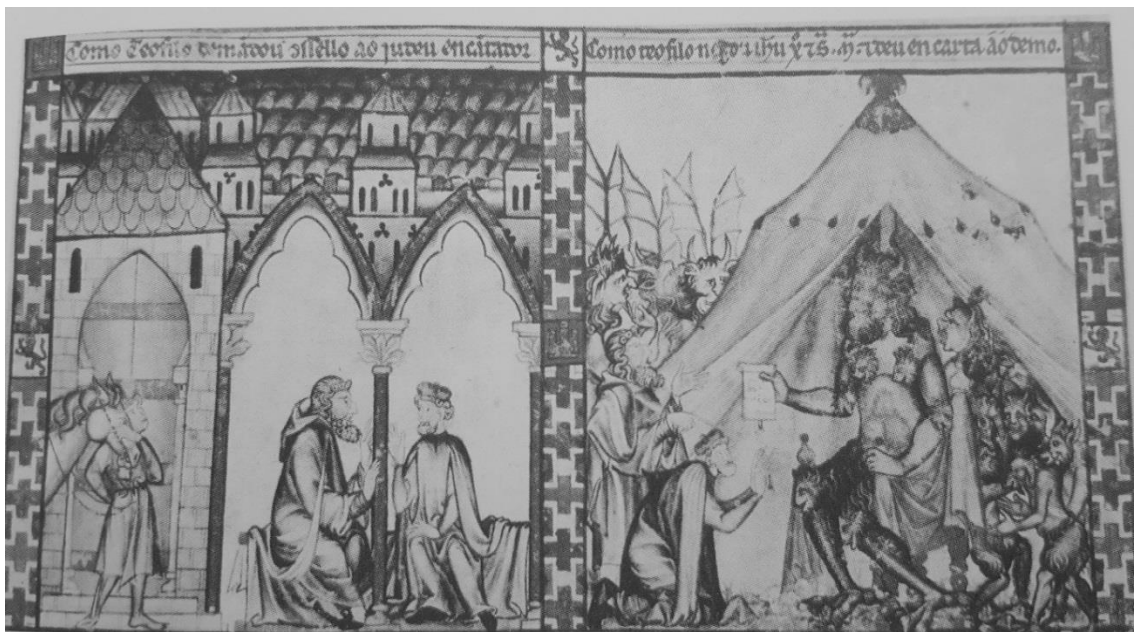 Como Teofilo demãdou ɔssello ao judeu encãtador
Como teofilo negou ihu x̃ τ s. m̃. τ deu en carta ao demo.